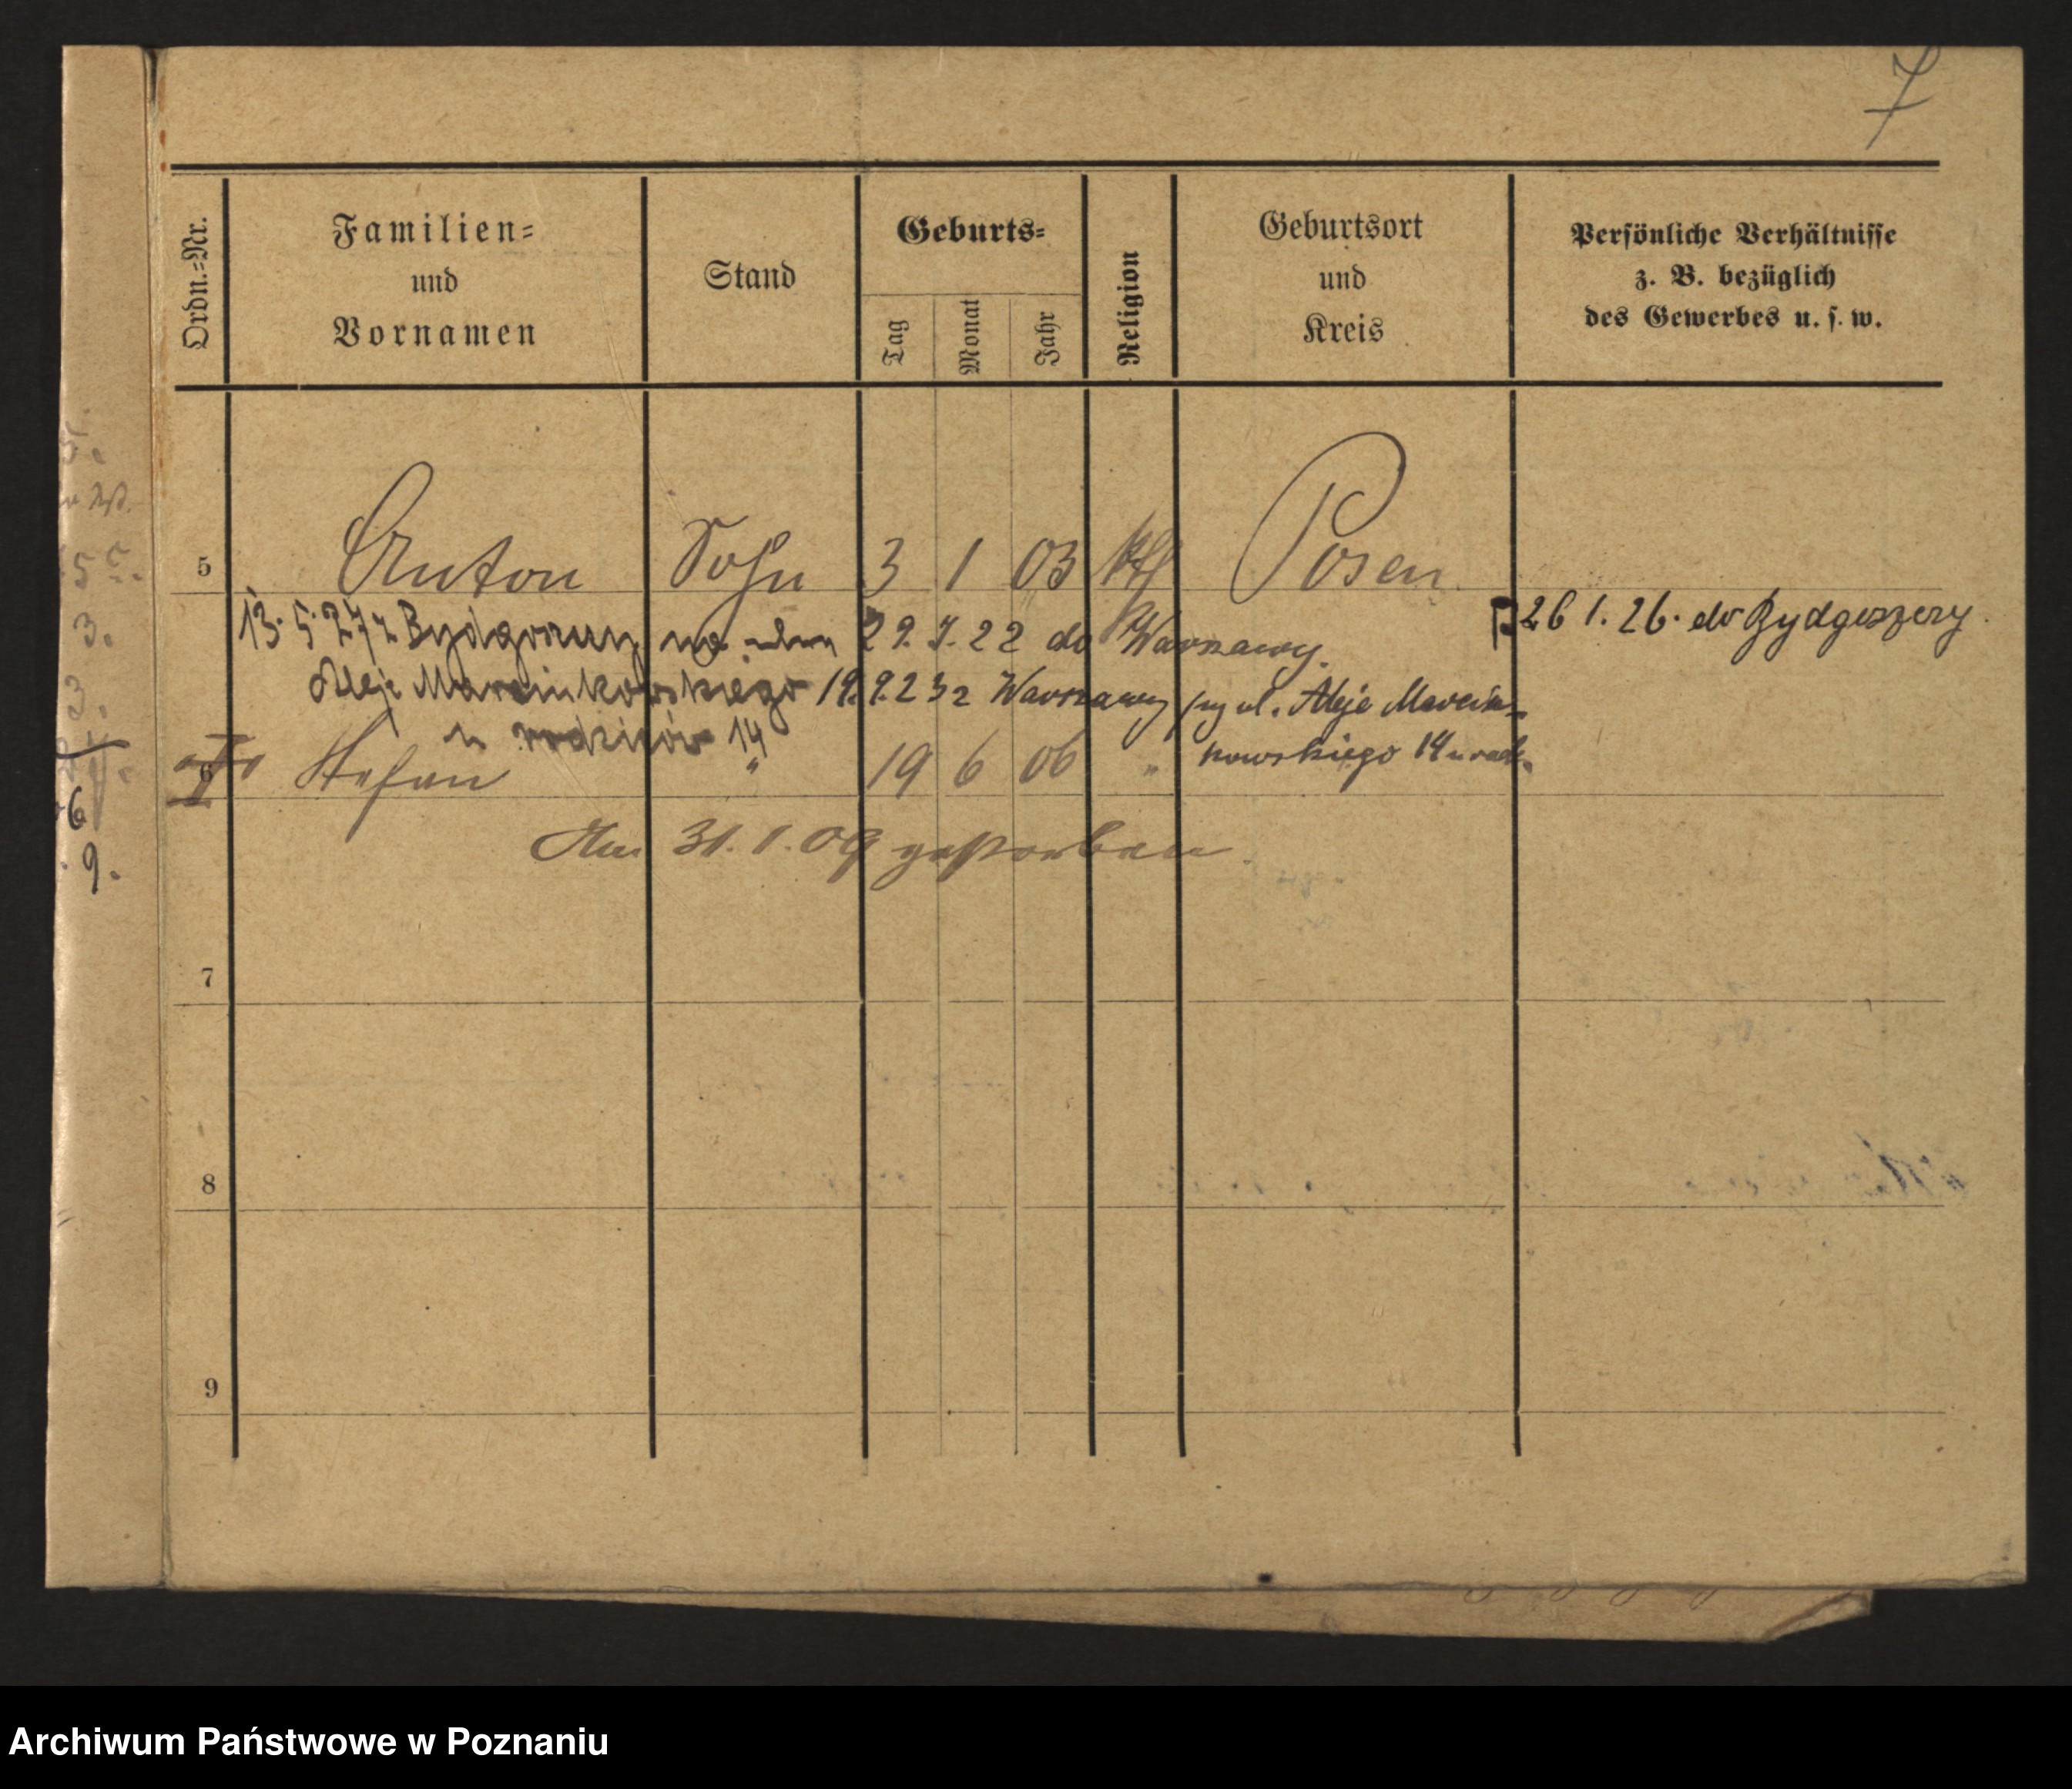 7
Ordn.=Nr.
Familien=
und
Vornamen
Stand
Geburts=
Tag
Monat
Jahr
Religion
Geburtsort
und
Kreis
Persönliche Verhältnisse
z. B. bezüglich
des Gewerbes u. s. w.
5 Anton Sohn 3 1 03 kth Posen
13. 5. 27 z Bydgoszczy na 29. 7. 22 do Warszawy.
26 1. 26. do Bydgoszczy
Aleje Marcinkowskiego 19. 9. 23 z Warszawy przy ul. Aleje Marcin-
u rodziców 14
kowskiego 14 u rodz.
6 Stefan " 19 6 06 "
Am 31. 1. 09 gestorben.
7
8
9
3.
3.
6
9.
Archiwum Państwowe w Poznaniu